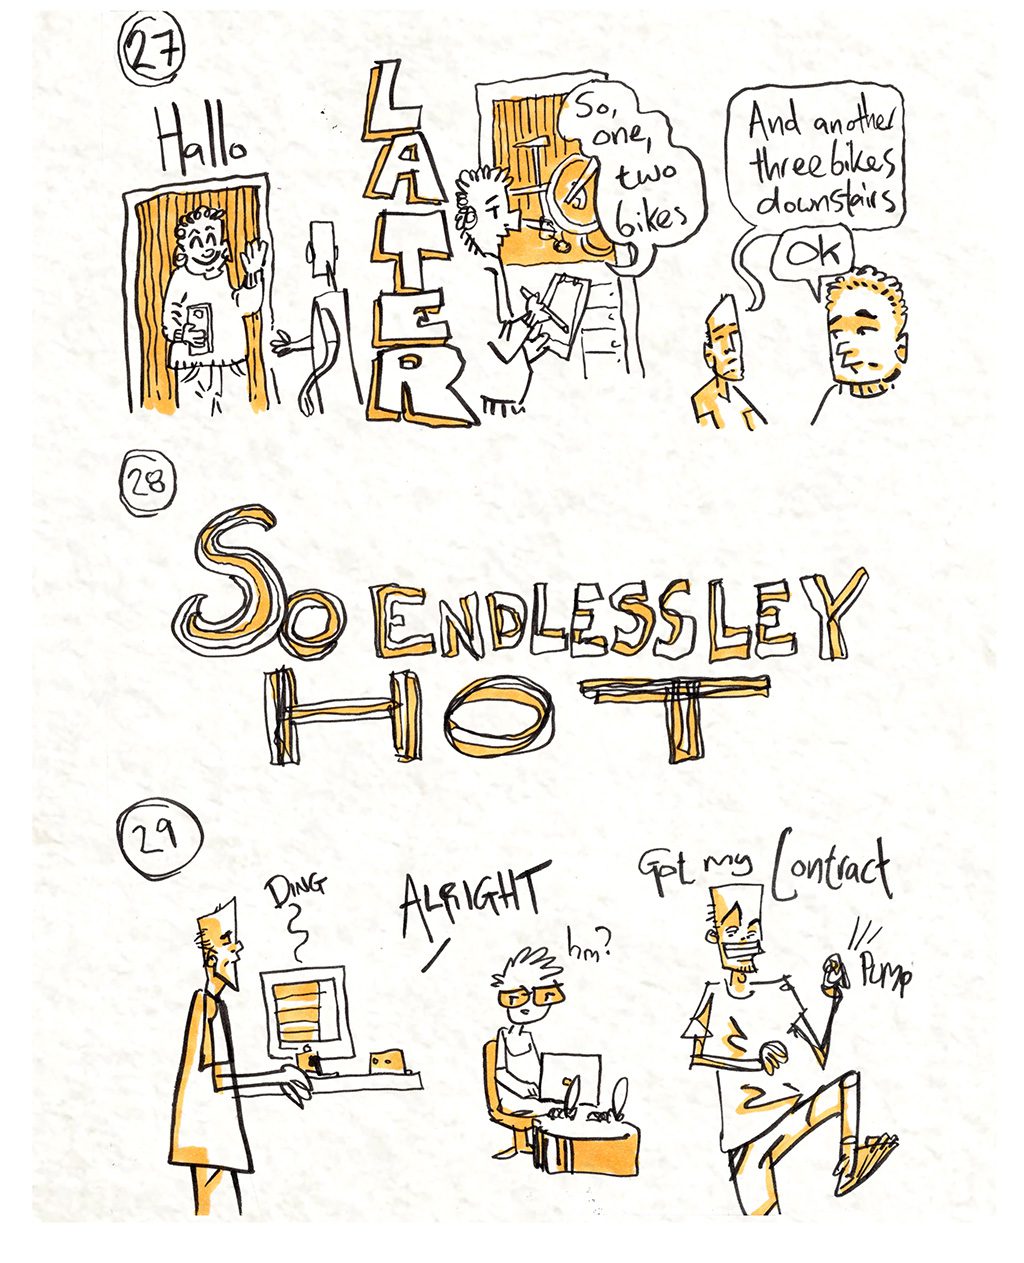 27
Hallo
LATER
So,
one,
two
bikes
And another
three bikes
downstairs
OK
28
So ENDLESSLEY
HOT
29
DING
ALRIGHT
hm?
Got my Contract
PUMP